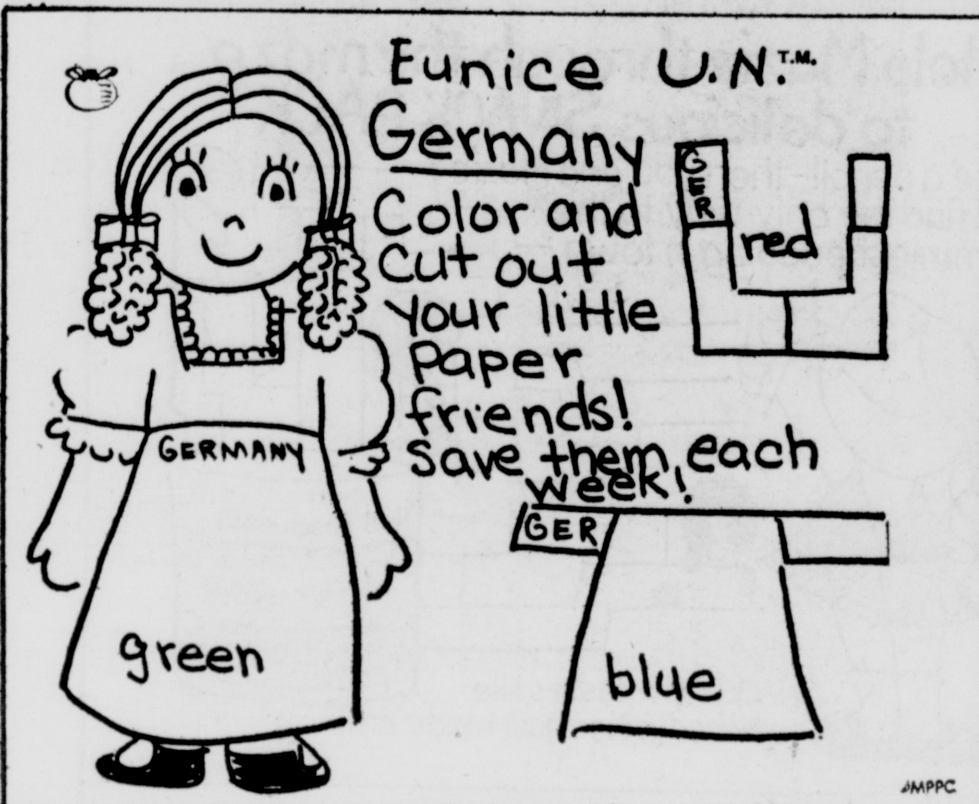 Eunice U.N.™
Germany
Color and
cut out
your little
paper
friends!
Save them each
week!
GER
red
GERMANY
green
GER
blue
MPPC